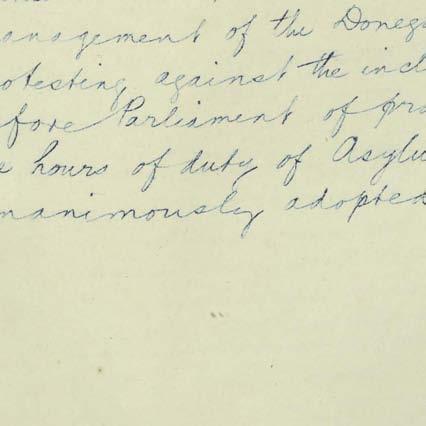 anagement of the Doneg
otesting against the incl
fore Parliament of pro
s hours of duty of Asylu
nanimously adopted